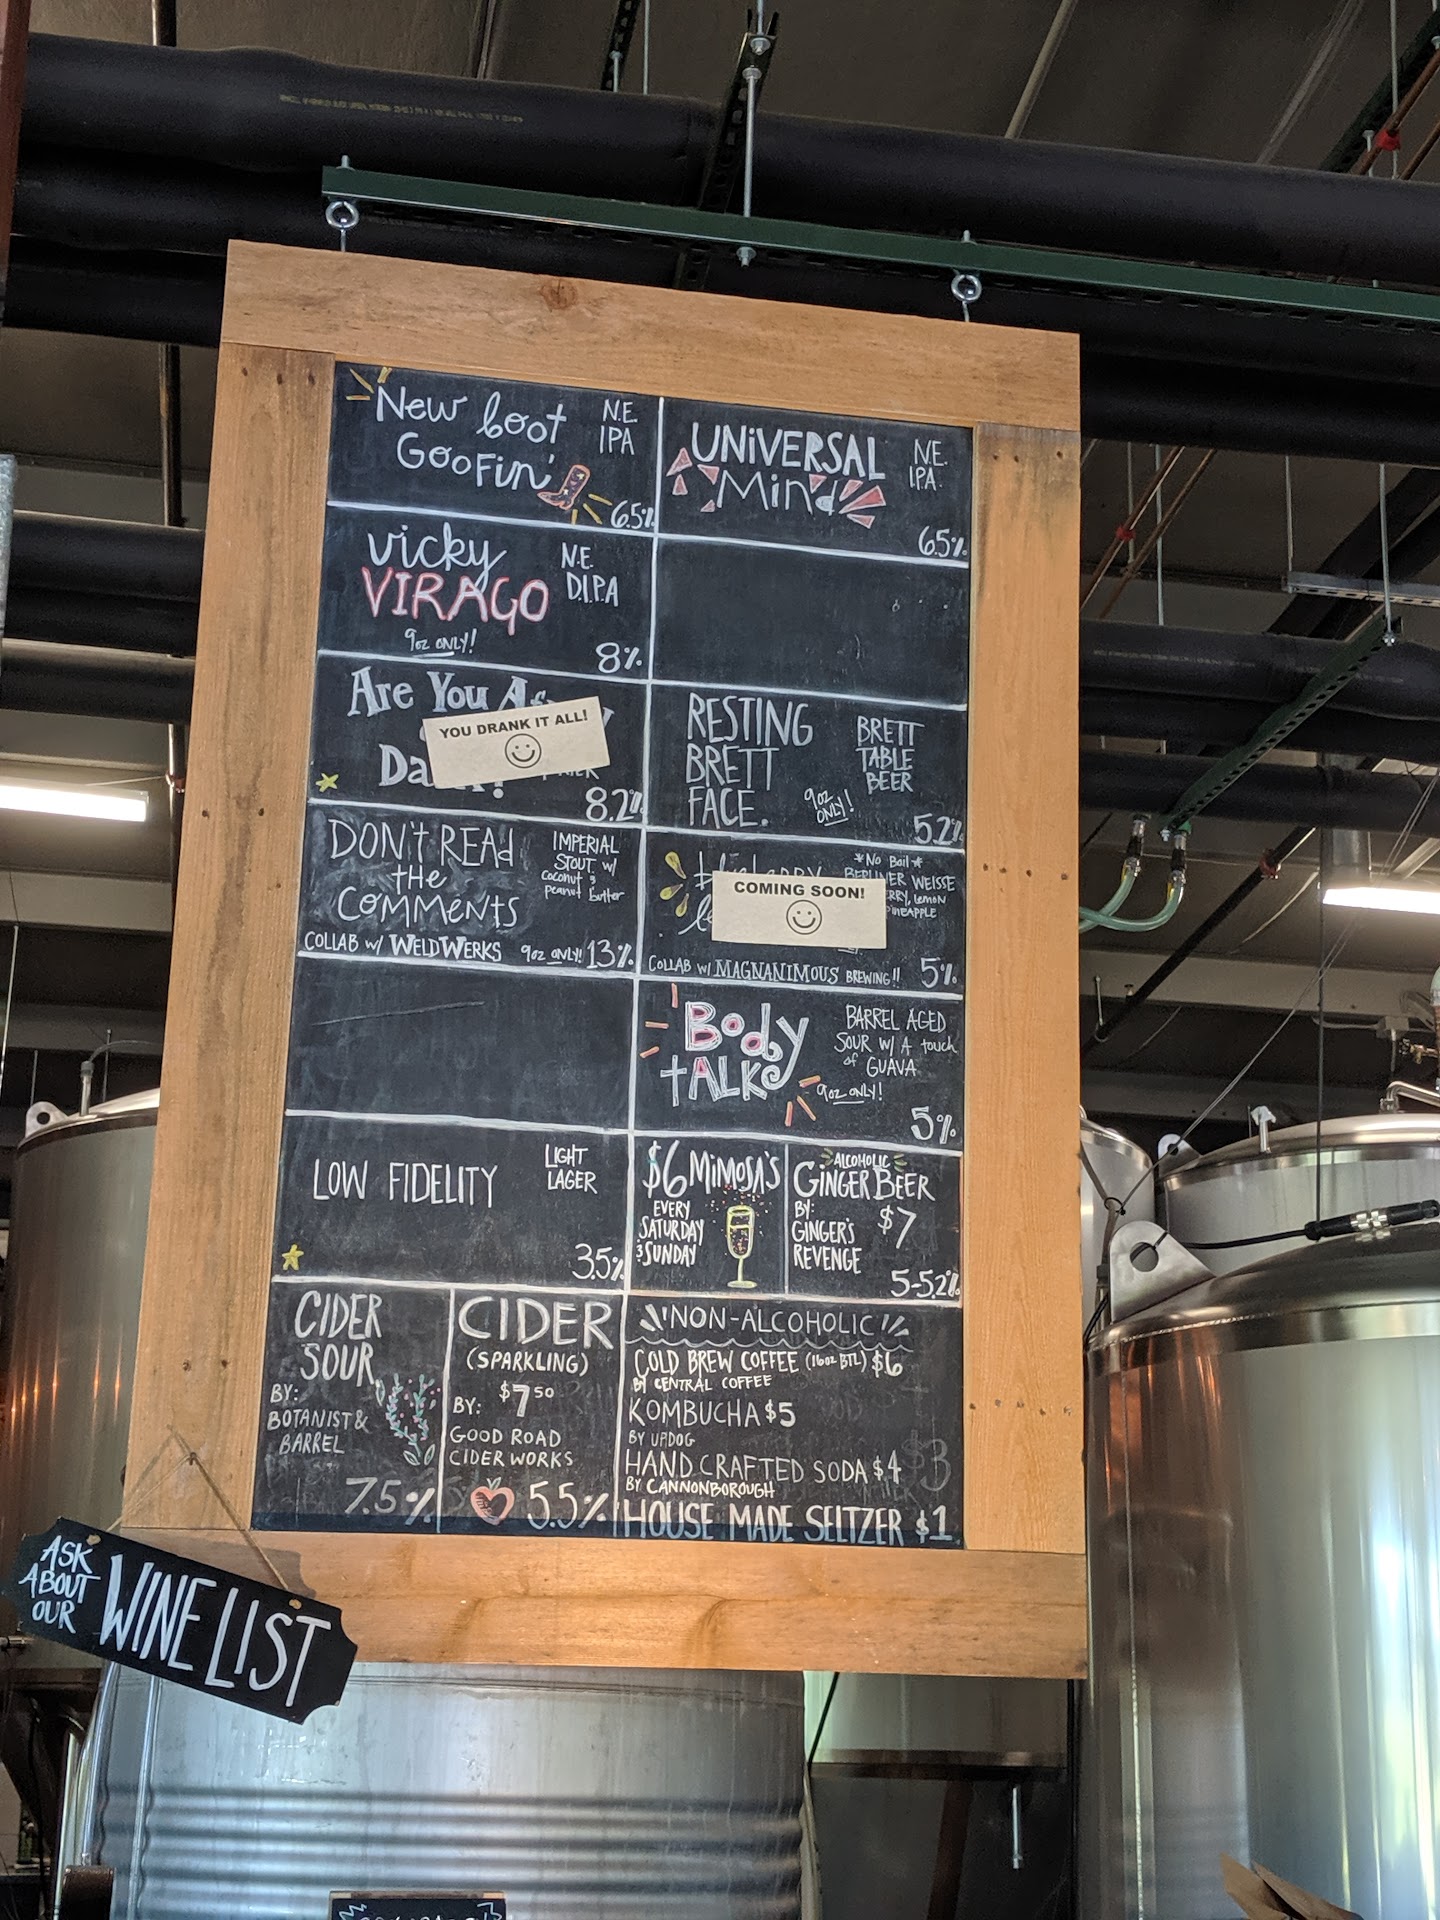 New boot
Goofin'
N.E.
IPA
6.5%
UNiVERSAL
Mind
N.E.
I.P.A.
6.5%
vicky
VIRAGO
N.E.
D.I.P.A
9oz ONLY!
8%
Are You
YOU DRANK IT ALL!
8.2%
RESTING
BRETT
FACE.
BRETT
TABLE
BEER
9oz
ONLY!
5.2%
DON't READ
tHe
COMMeNTS
IMPERIAL
STOUT w/
Coconut &
peanut butter
COLLAB w/ WELDWERKS
9oz ONLY!
13%
COMING SOON!
*No Boil*
WEISSE
Lemon
COLLAB w/ MAGNANIMOUS BREWING!!
5%
Body
tALK
BARREL AGED
SOUR W/ A touch
of GUAVA
9oz ONLY!
5%
LOW FIDELITY
LIGHT
LAGER
3.5%
$6 MiMOSA'S
EVERY
SATURDAY
& SUNDAY
ALCOHOLIC
GINGER BEER
BY:
GINGER'S
REVENGE
$7
5-5.2%
CIDER
SOUR
BY:
BOTANIST &
BARREL
7.5%
CIDER
(SPARKLING)
$7.50
BY:
GOOD ROAD
CIDERWORKS
5.5%
NON-ALCOHOLIC
COLD BREW COFFEE (16oz BTL) $6
BY CENTRAL COFFEE
KOMBUCHA $5
BY UPDOG
HAND CRAFTED SODA $4
BY CANNONBOROUGH
HOUSE MADE SELTZER $1
ASK
ABOUT
OUR
WINE LIST